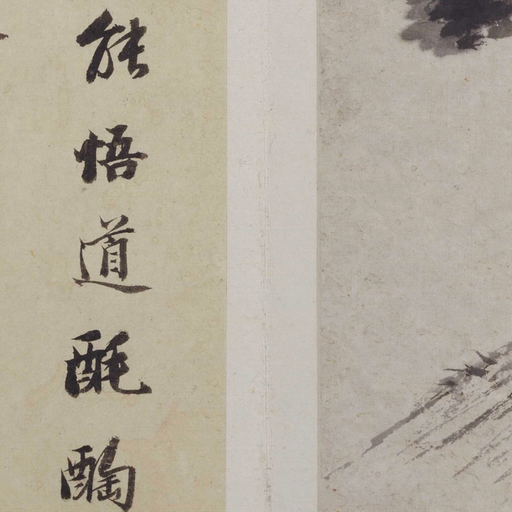 能悟道酕醄